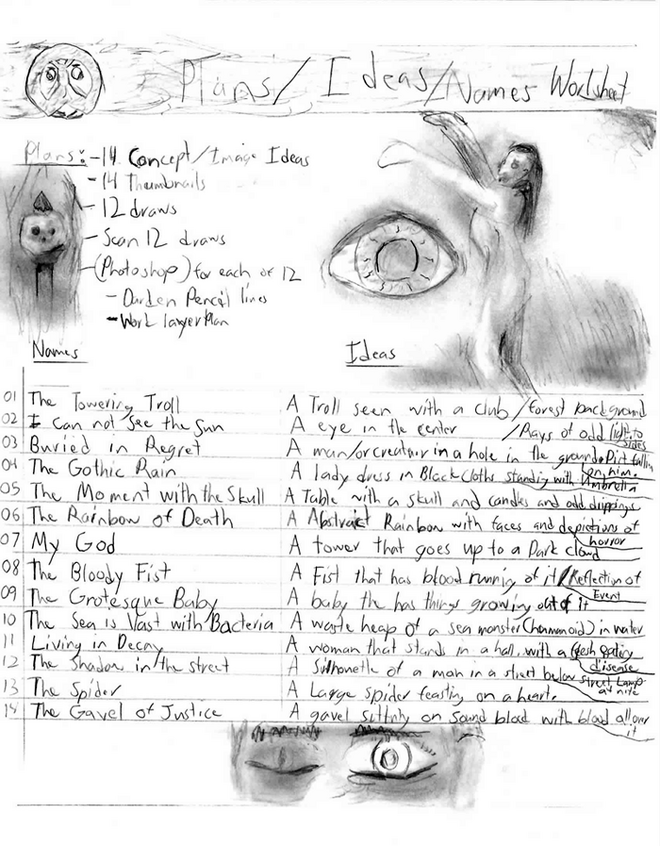 Plans/Ideas/Names Worksheet
Plans: -14 Concept/Image Ideas
-14 Thumbnails
-12 draws
-Scan 12 draws
-(Photoshop) for each of 12
-Darken Pencil lines
-Work layer Plan
Names
Ideas
01 The Towering Troll A Troll seen with a club /forest background
02 I can not see the sun A eye in the center /Rays of odd light to sides
03 Buried in Regret A man/or creature in a hole in the ground. Dirt fallin on him.
04 The Gothic Rain A lady dress in Black Cloths standing with Umbrella
05 The Moment with the Skull A Table with a skull and candles and odd drippings
06 The Rainbow of Death A Abstract Rainbow with faces and depictions of horror
07 My God A tower that goes up to a Dark cloud
08 The Bloody Fist A Fist that has blood running of it/Reflection of Event
09 The Grotesque Baby A baby the has things growing out of it
10 The Sea is Vast with Bacteria A waste heap of a sea monster (humanoid) in water
11 Living in Decay A woman that stands in a hall, with a flesh eating disease
12 The Shadow in the street A Silhouette of a man in a street below street Lamp at nite
13 The Spider A Large spider feasting on a heart.
14 The Gavel of Justice A gavel sitting on sound block with blood all over it